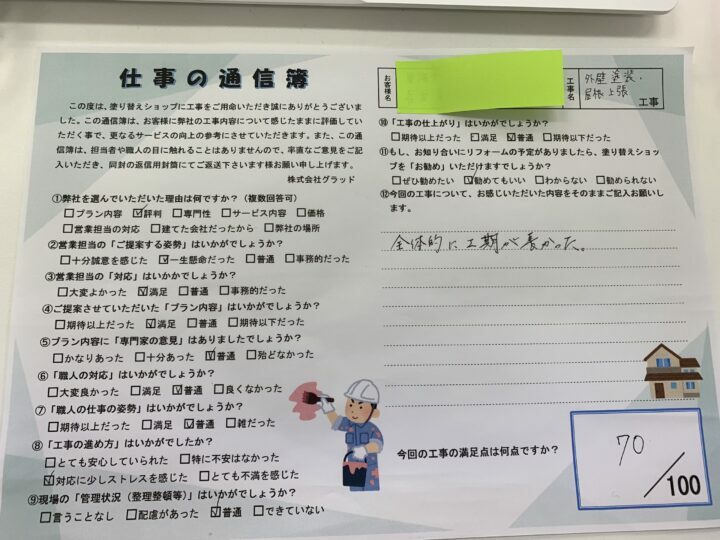 仕事の通信簿
この度は、塗り替えショップに工事をご用命いただき誠にありがとうございま
した。この通信簿は、お客様に弊社の工事内容について感じたままに評価してい
ただく事で、更なるサービスの向上の参考にさせていただきます。また、この通
信簿は、担当者や職人の目に触れることはありませんので、率直なご意見をご記
入いただき、同封の返信用封筒にてご返送下さいます様お願い申し上げます。
株式会社グラッド
①弊社を選んでいただいた理由は何ですか？（複数回答可）
□プラン内容 ☑評判 □専門性 □サービス内容 □価格
□営業担当の対応 □建てた会社だったから □弊社の場所
②営業担当の「ご提案する姿勢」はいかがでしょうか？
□十分誠意を感じた ☑一生懸命だった □普通 □事務的だった
③営業担当の「対応」はいかかでしょうか？
□大変よかった ☑満足 □普通 □事務的だった
④ご提案させていただいた「プラン内容」はいかがでしょうか？
□期待以上だった ☑満足 □普通 □期待以下だった
⑤プラン内容に「専門家の意見」はありましたでしょうか？
□かなりあった □十分あった ☑普通 □殆どなかった
⑥「職人の対応」はいかがでしょうか？
□大変良かった □満足 ☑普通 □良くなかった
⑦「職人の仕事の姿勢」はいかがでしょうか？
□期待以上だった □満足 ☑普通 □雑だった
⑧「工事の進め方」はいかがでしたか？
□とても安心していられた □特に不安はなかった
☑対応に少しストレスを感じた □とても不満を感じた
⑨現場の「管理状況（整理整頓等）」はいかがでしょうか？
□言うことなし □配慮があった ☑普通 □できていない
お客様名
工事名
外壁塗装・
屋根上張
工事
⑩「工事の仕上がり」はいかがでしょうか？
□期待以上だった □満足 ☑普通 □期待以下だった
⑪もし、お知り合いにリフォームの予定がありましたら、塗り替えショッ
プを「お勧め」いただけますでしょうか？
□ぜひ勧めたい ☑勧めてもいい □わからない □勧められない
⑫今回の工事について、お感じいただいた内容をそのままご記入お願いし
ます。
全体的に工期が長かった。
今回の工事の満足点は何点ですか？
70
/100